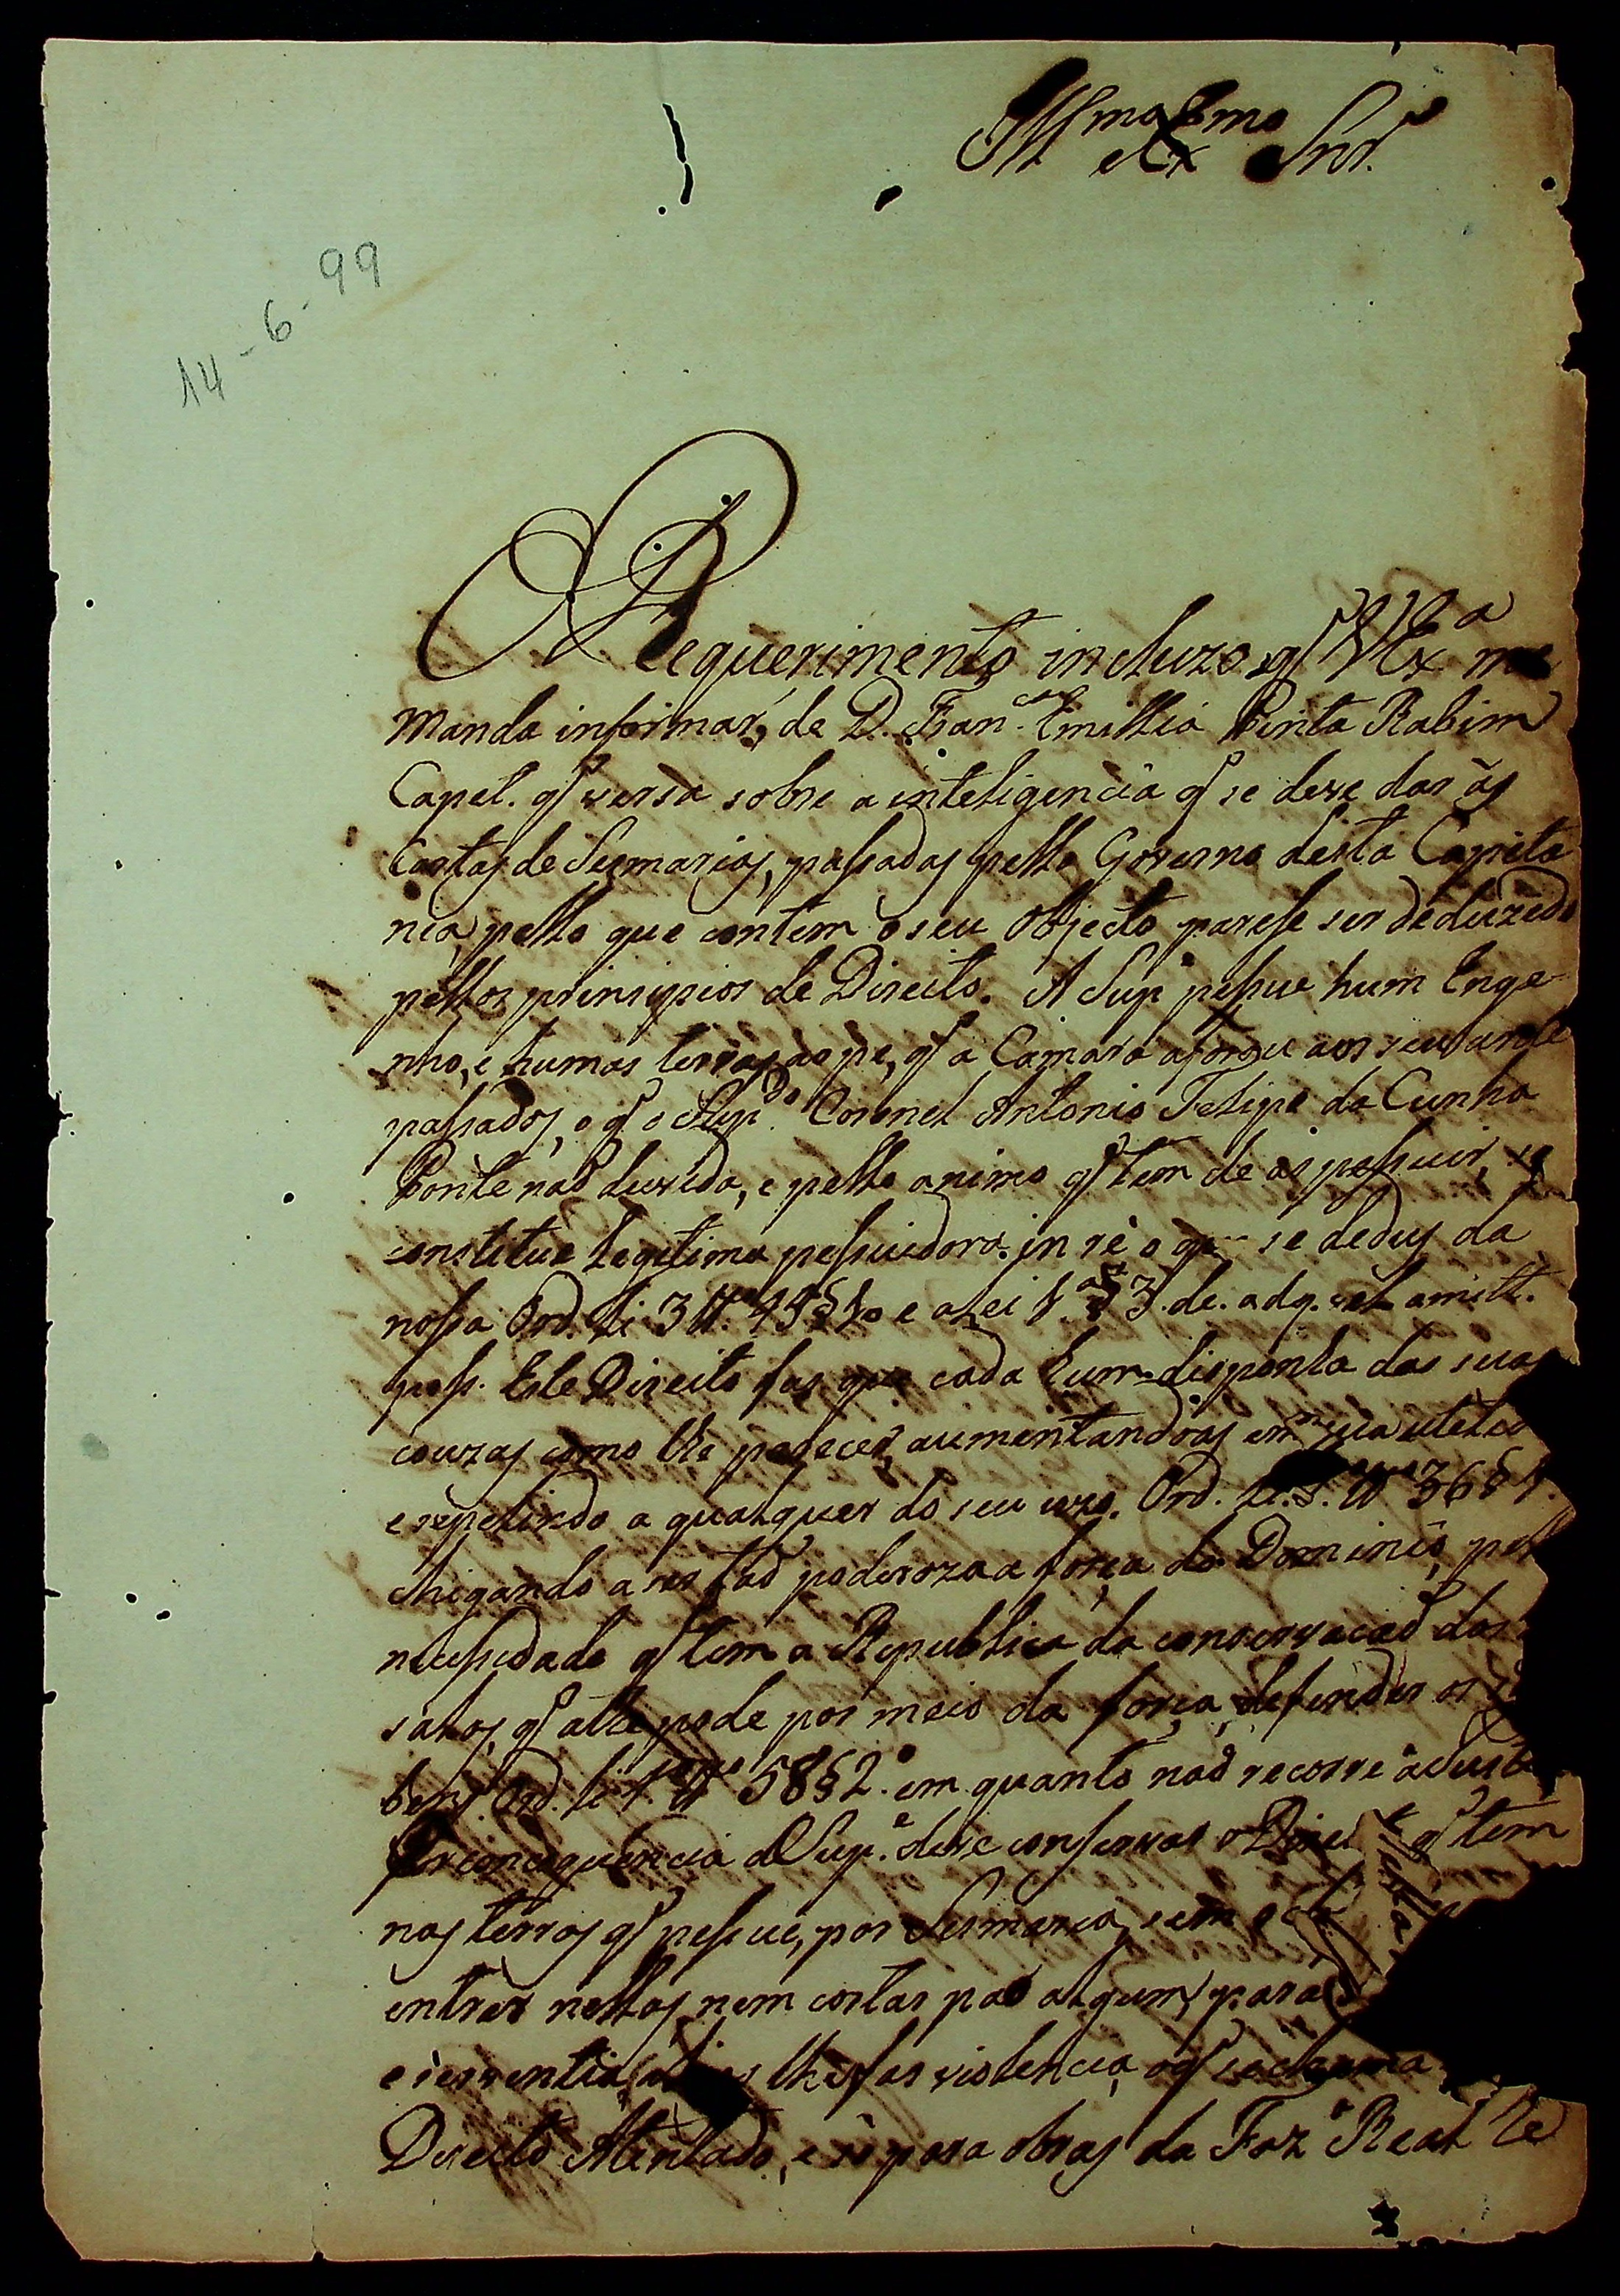 Ill.mo e Ex.mo Snr.
14-6-99
Requerimento incluzo, q VEx.a me
manda informar, de D. Fran.ca Emillia Pinta Rabim
Capel. q versa sobre a inteligencia q se deve dar ás
Cartas de Sesmarias, passadas pello Governo desta Capita
nia, pello que contem o seu Objecto parese ser deduzido
pellos prinsipios de Direito. A Sup.e pessue hum Enge
nho, e humas terras ao pe, q a Camara aforou aos seus ante
passados, o q o Sup.do Coronel Antonio Felipe da Cunha
Ponte naõ duvida, e pello animo q tem de as pessuir, se
constitue legitima pessuidora in re o que se dedus da
nossa Ord. L. 3 tt.o 45 § 10 e a Lei 1.a § 3. de. adq. vel amitt.
poss. Este Direito fas que cada hum disponha das suas
couzas como lhe parecer, aumentandoas em sua utelid
e repelindo a qualquer do seu uzo. Ord. L. tt.o 36 § 1.
chigando a ser taõ poderoza a força do Dominio, pella
necessidade q tem a Republica da conservacaõ dos
salos, q athe pode por meio da força, defender os s
bens. Ord. L. tt.o 58 § 2.o em quanto naõ recorre a Just
Por concequencia a Sup.e deve conservar o Direi q tem
nas terras q pessue, por Sesmaria, sem
entrar nellas, nem cortar pao algum, para
e serventia, lhe fas violencia, o q se chama
Direito Atentado, e só para obras da Faz.a Real he